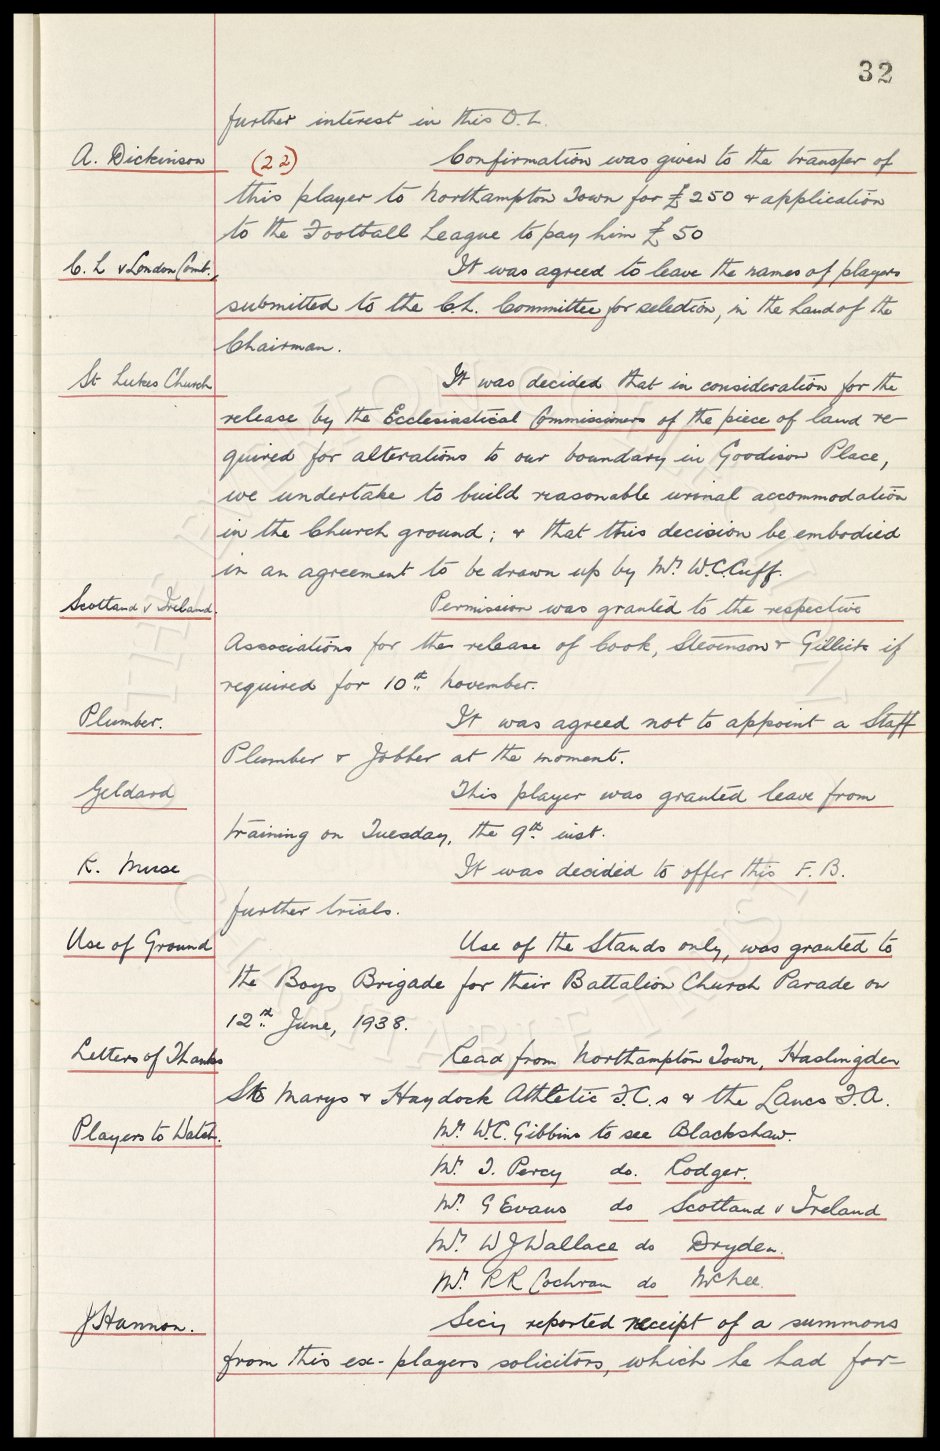 32
further interest in this O.L.
A. Dickinson (22) Confirmation was given to the transfer of
this player to Northampton Town for £250 & application
to the Football League to pay him £50
C. L v London Comb., It was agreed to leave the names of players
submitted to the C.L. Committee for selection, in the hand of the
Chairman.
St Lukes Church It was decided that in consideration for the
release by the Ecclesiastical Commissioners of the piece of land re-
quired for alterations to our boundary in Goodison Place,
we undertake to build reasonable urinal accommodation
in the Church ground; & that this decision be embodied
in an agreement to be drawn up by Mr. W.C. Cuff.
Scotland v Ireland. Permission was granted to the respective
Associations for the release of Cook, Stevenson & Gillick if
required for 10th November.
Plumber. It was agreed not to appoint a Staff
Plumber & Jobber at the moment.
Geldard This player was granted leave from
training on Tuesday, the 9th inst.
R. Muse It was decided to offer this F.B.
further trials.
Use of Ground Use of the Stands only, was granted to
the Boys Brigade for their Battalion Church Parade on
12th June, 1938.
Letters of Thanks Read from Northampton Town, Haslingden
St Marys & Haydock Athletic F.C.s & the Lancs F.A.
Players to Watch. Mr. W.C. Gibbins to see Blackshaw.
Mr. T. Percy do. Rodger.
Mr. G Evans do Scotland v Ireland
Mr. W J Wallace do Dryden.
Mr. R R Cochran do
J Hannon. Secy reported receipt of a summons
from this ex-players solicitors, which he had for-